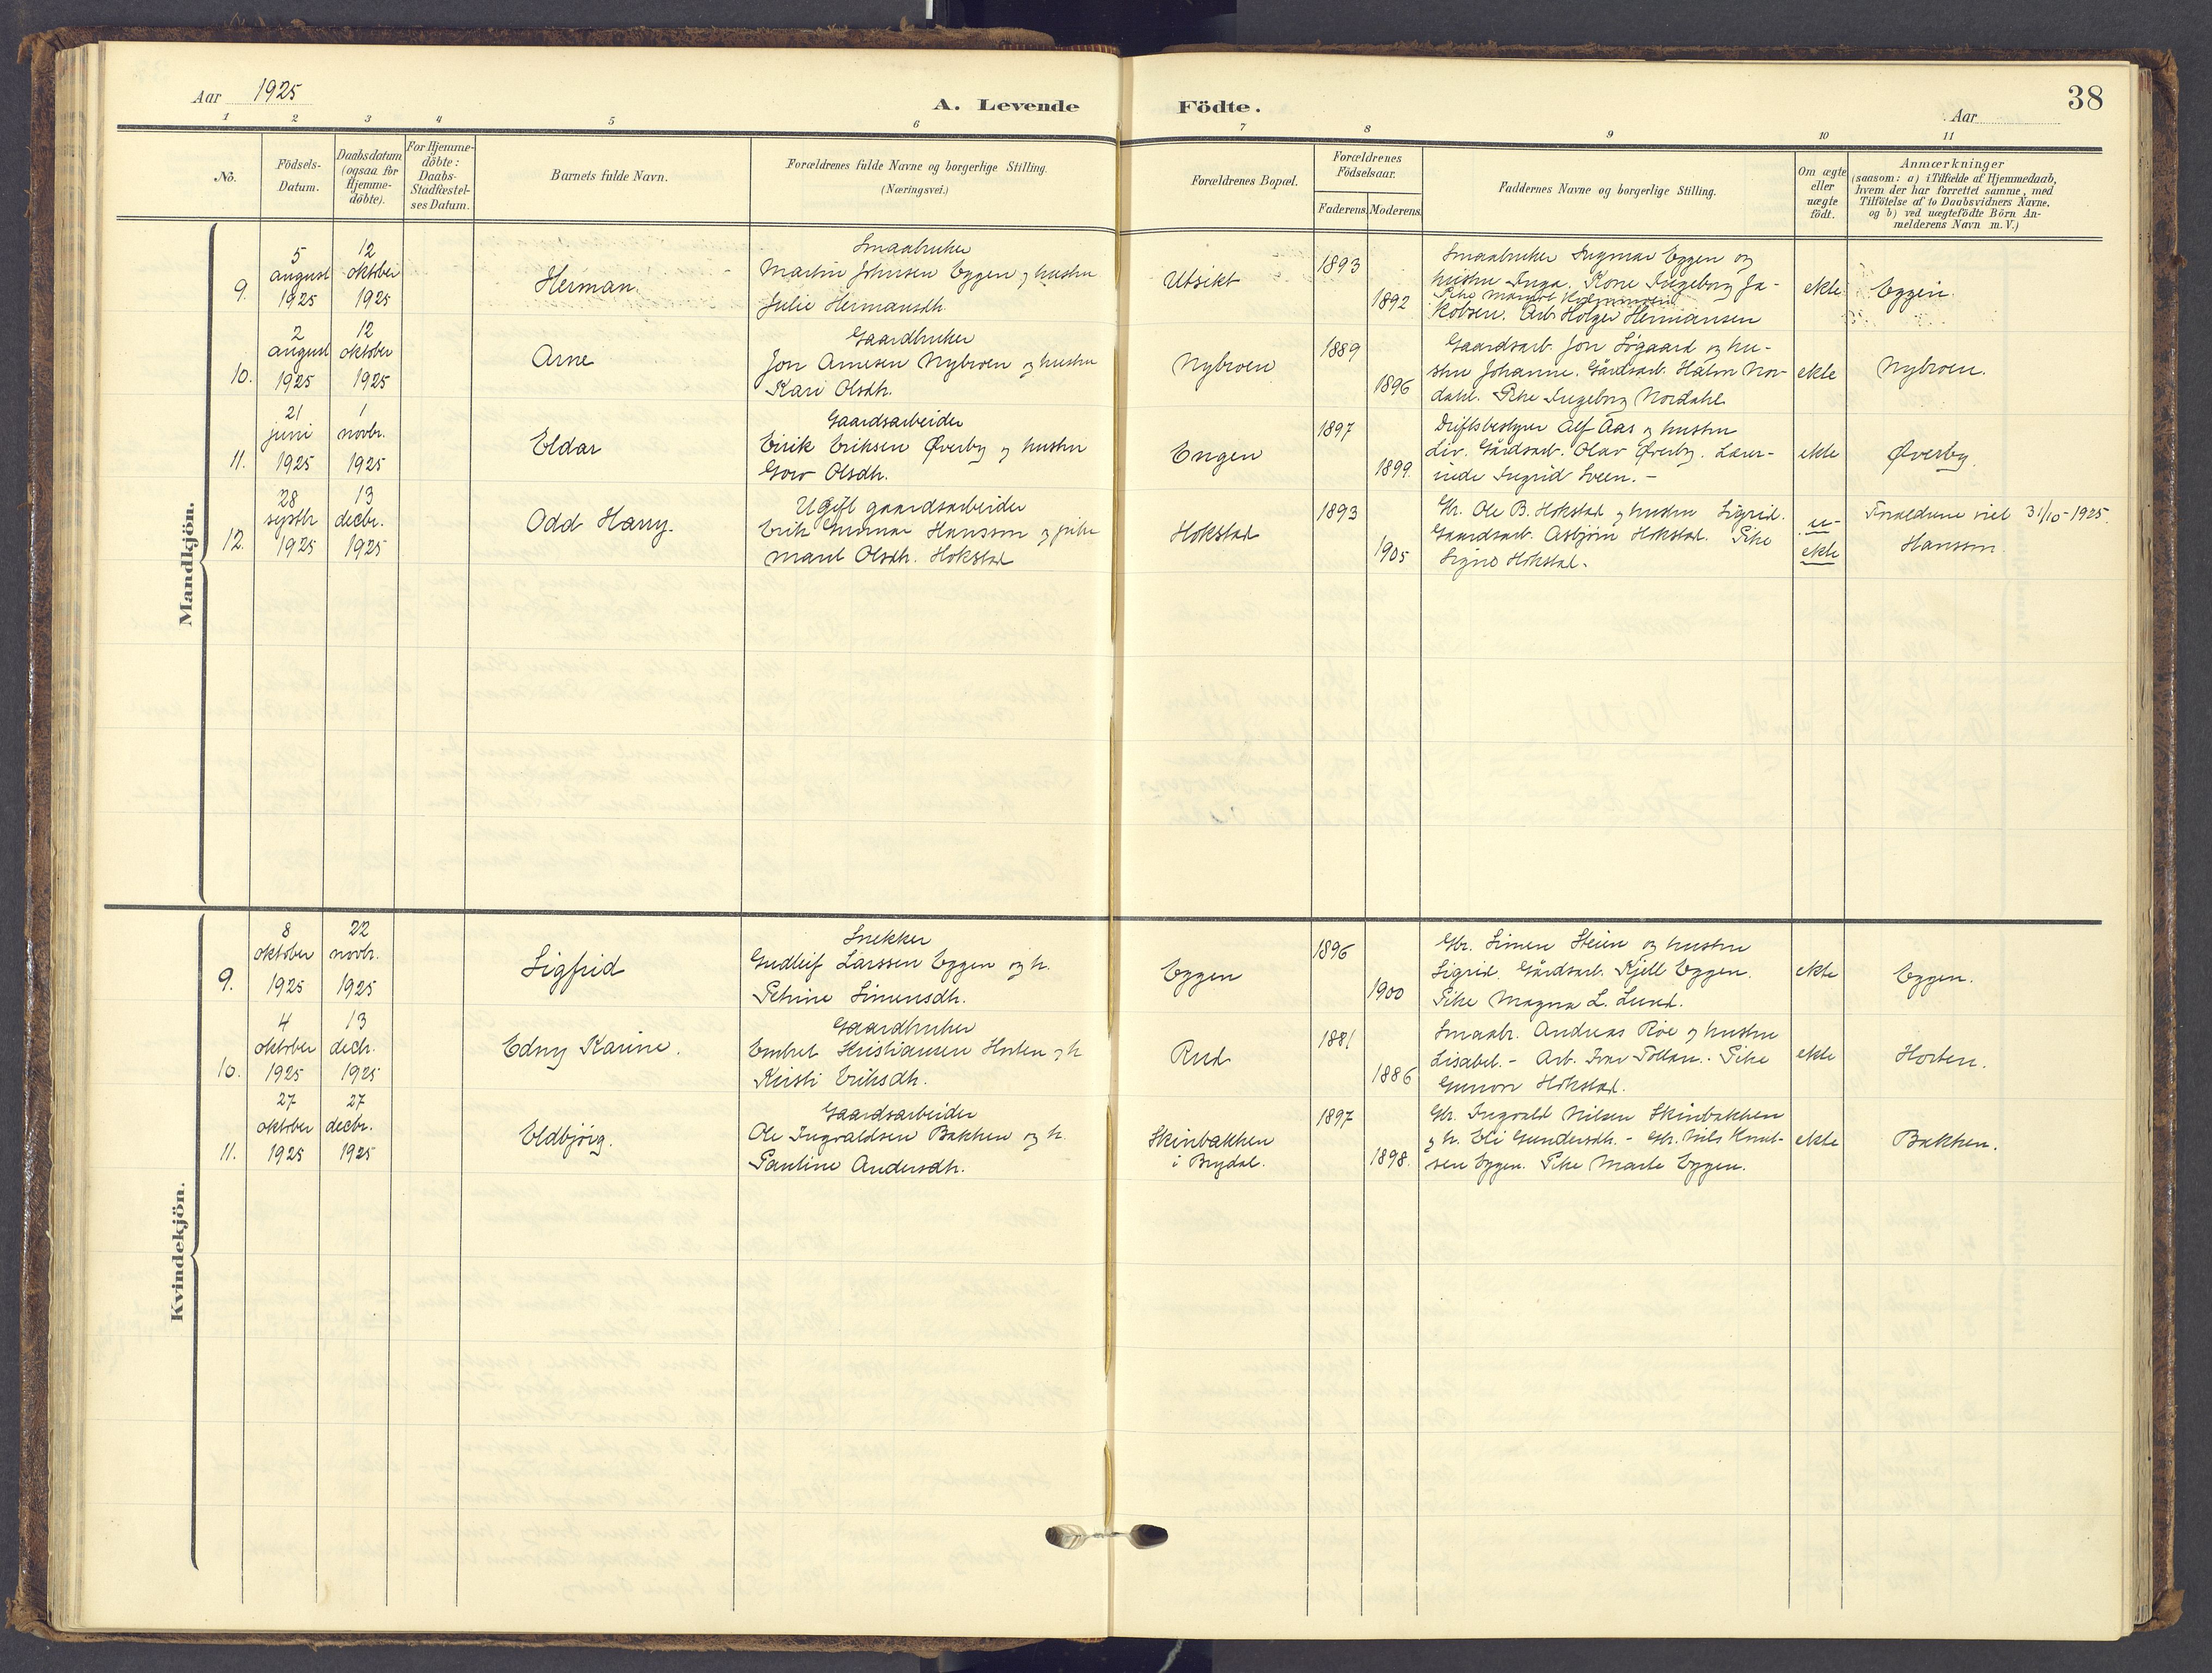 Aar 1925
A. Levende Födte.
Aar
38
1 2 3 4 5 6 7 8 9 10 11
No.
Födsels-Datum.
Daabsdatum (ogsaa for Hjemme-döbte).
For Hjemme-döbte: Daabs-Stadfæstel-ses Datum.
Barnets fulde Navn.
Forældrenes fulde Navne og borgerlige Stilling.
(Næringsvei.)
Forældrenes Bopæl.
Forældrenes Födselsaar.
Faderens. Moderens.
Faddernes Navne og borgerlige Stilling.
Om ægte eller uægte födt.
Anmærkninger
(saasom: a) i Tilfælde af Hjemmedaab, hvem der har forrettet samme, med Tilföielse af to Daabsvidners Navne, og b) ved uægtefödte Börn Anmelderens Navn m.V.)
Mandkjön.
9.
5 august 1925
12 oktober 1925
Herman.
Smaabruker
Martin Johnsen Eggen og hustru
Julie Hermansdh.
Utsikt
1893
1892
Smaabruker Ingmar Eggen og
hustru Inga. Kone Ingeborg Ja-
Pike Margit
kobsen. Arb. Holger Hermansen
ekte
Eggen.
10.
2 august 1925
12 oktober 1925
Arne
Gaardbruker
Jon Arnesen Nybroen og hustru
Kari Olsdh.
Nybroen
1889
1896
Gaardsarb. Jon Sogaard og hu-
stru Johanne. Gårdsarb. Halvor Nor-
dahl. Pike Ingeborg Nordahl
ekte
Nybroen.
11.
21 juni 1925
1 novbr. 1925
Eldar
Gaardsarbeider
Eirik Eriksen Øverby og hustru
Goro Olsdh.
Engen
1897
1899.
Driftsbestyrer Alf Aas og hustru
Liv. Gårdsarb. Olav Øverby. Lærer-
inde Ingrid Sveen. -
ekte
Øverby.
12.
28 septbr 1925
13 decbr. 1925
Odd Harry.
Ugift gaardsarbeider
Erik Gunnar Hansson og pike
Marit Olsdh. Hokstad
Hokstad
1893
1905
Gbr. Ole B. Hokstad og hustru Sigrid.
Gaardsarb. Asbjørn Hokstad. Pike
Signe Hokstad.
u-
ekte
Forældrene viet 31/10-1925.
Hansson.
Kvindekjön.
9.
8 oktober 1925
22 novbr. 1925
Sigfrid
Snekker
Gudleif Larssen Eggen og h.
Petrine Simensdh.
Eggen
1896
1900
Gbr. Simen Steien og hustru
Sigrid. Gårdsarb. Kjell Eggen.
Pike Magna L. Lund.
ekte
Eggen.
10.
4 oktober 1925
13 decbr. 1925
Edny Karine.
Gaardbruker
Embret Kristiansen Horten og h
Kirsti Eriksdh.
Rud
1881
1886
Smaabr. Andreas Røe og hustru
Lisabet. - Arb. Ivar Tollan. Pike
Gunvor Hokstad.
ekte
Horten.
11.
27 oktober 1925
27 decbr. 1925
Eldbjörg.
Gaardsarbeider
Ole Ingvaldsen Bakken og h.
Pauline Andersdh.
Skinbakken
i Brydal.
1897
1898.
Gbr. Ingvald Nilsen Skinbakken
og h. Eli Gundersdh. - Gbr. Nils Knut-
sen Eggen. Pike Marte Eggen.
ekte
Bakken.